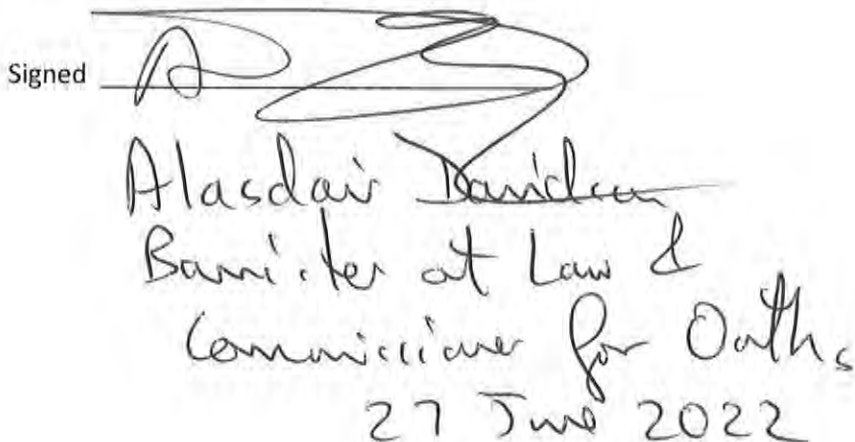 Signed
Alasdair Davidson
Barrister at Law &
Commissioner for Oaths
27 June 2022